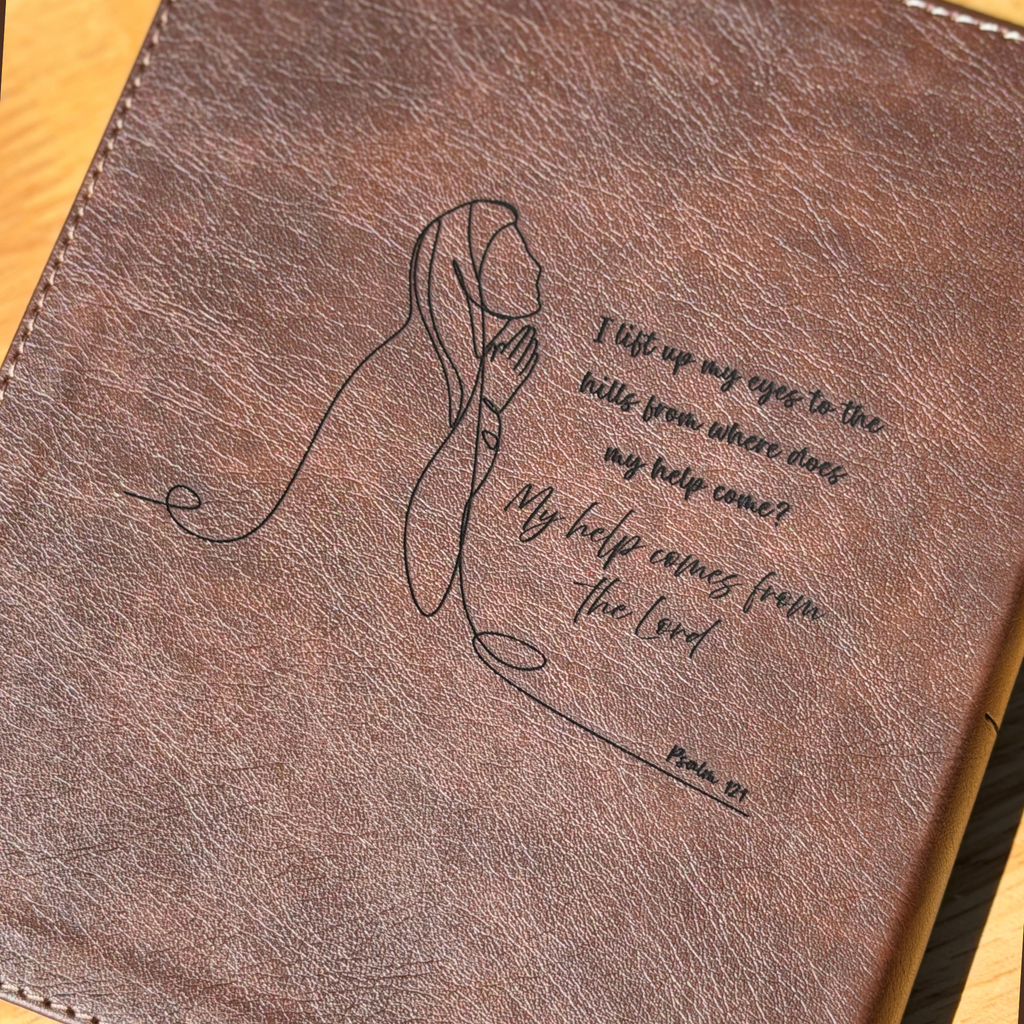 I lift up my eyes to the
hills from where does
my help come?
My help comes from
the Lord
Psalm 121